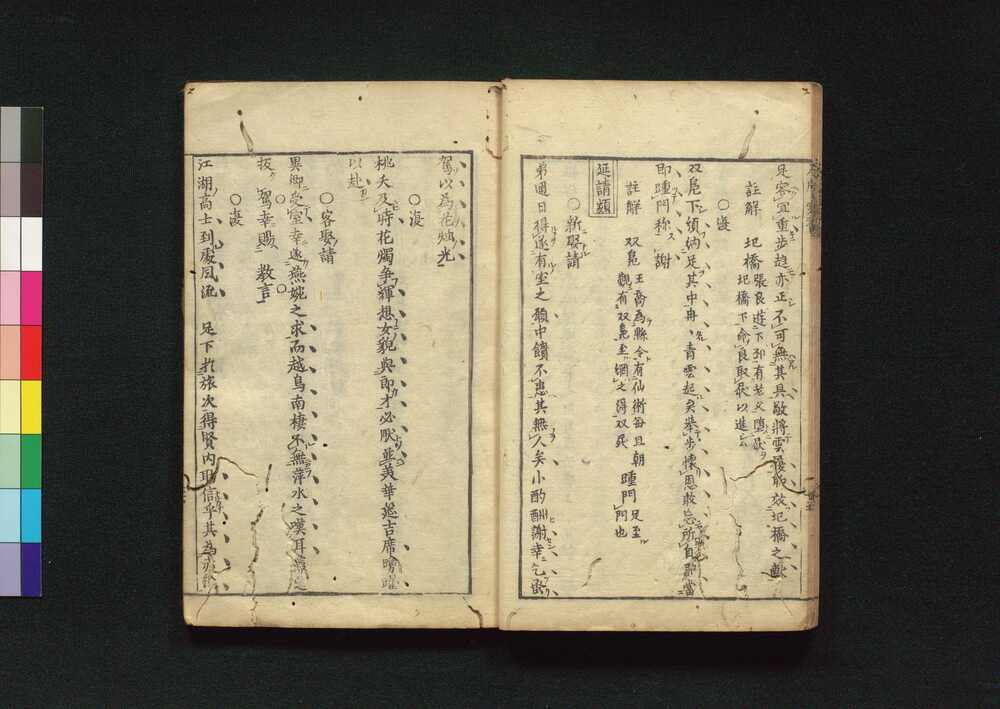 足容宜重步趋亦正不可無其具敬將雲履取效圯橋之獻
註解 圯橋 張良遊下邳有老父墮欤
圯橋下命良取欤以進云
○復
双鳬下頒納足其中冉、青雲起矣挙步懐恩敢忘所自即當
即踵門称謝
註解 双鳬 王喬為縣令有仙術毎旦朝 踵門 足至
觀有双鳬至網之得双舃 門也
延請類
○新娶請
弟週日得遂有室之願中饋不患其無人矣小酌酬謝幸乞蚤
駕以為花燭光
○復
桃夭及時花燭争輝想女貌與郎才必厭並美華筵吉席
以赴
○客娶請
異郷受室幸遂燕婉之求而越鳥南棲不無萍水之嘆耳
抜 駕幸賜 教言
○復
江湖高士到處風流 足下於旅次得賢内助信乎其為